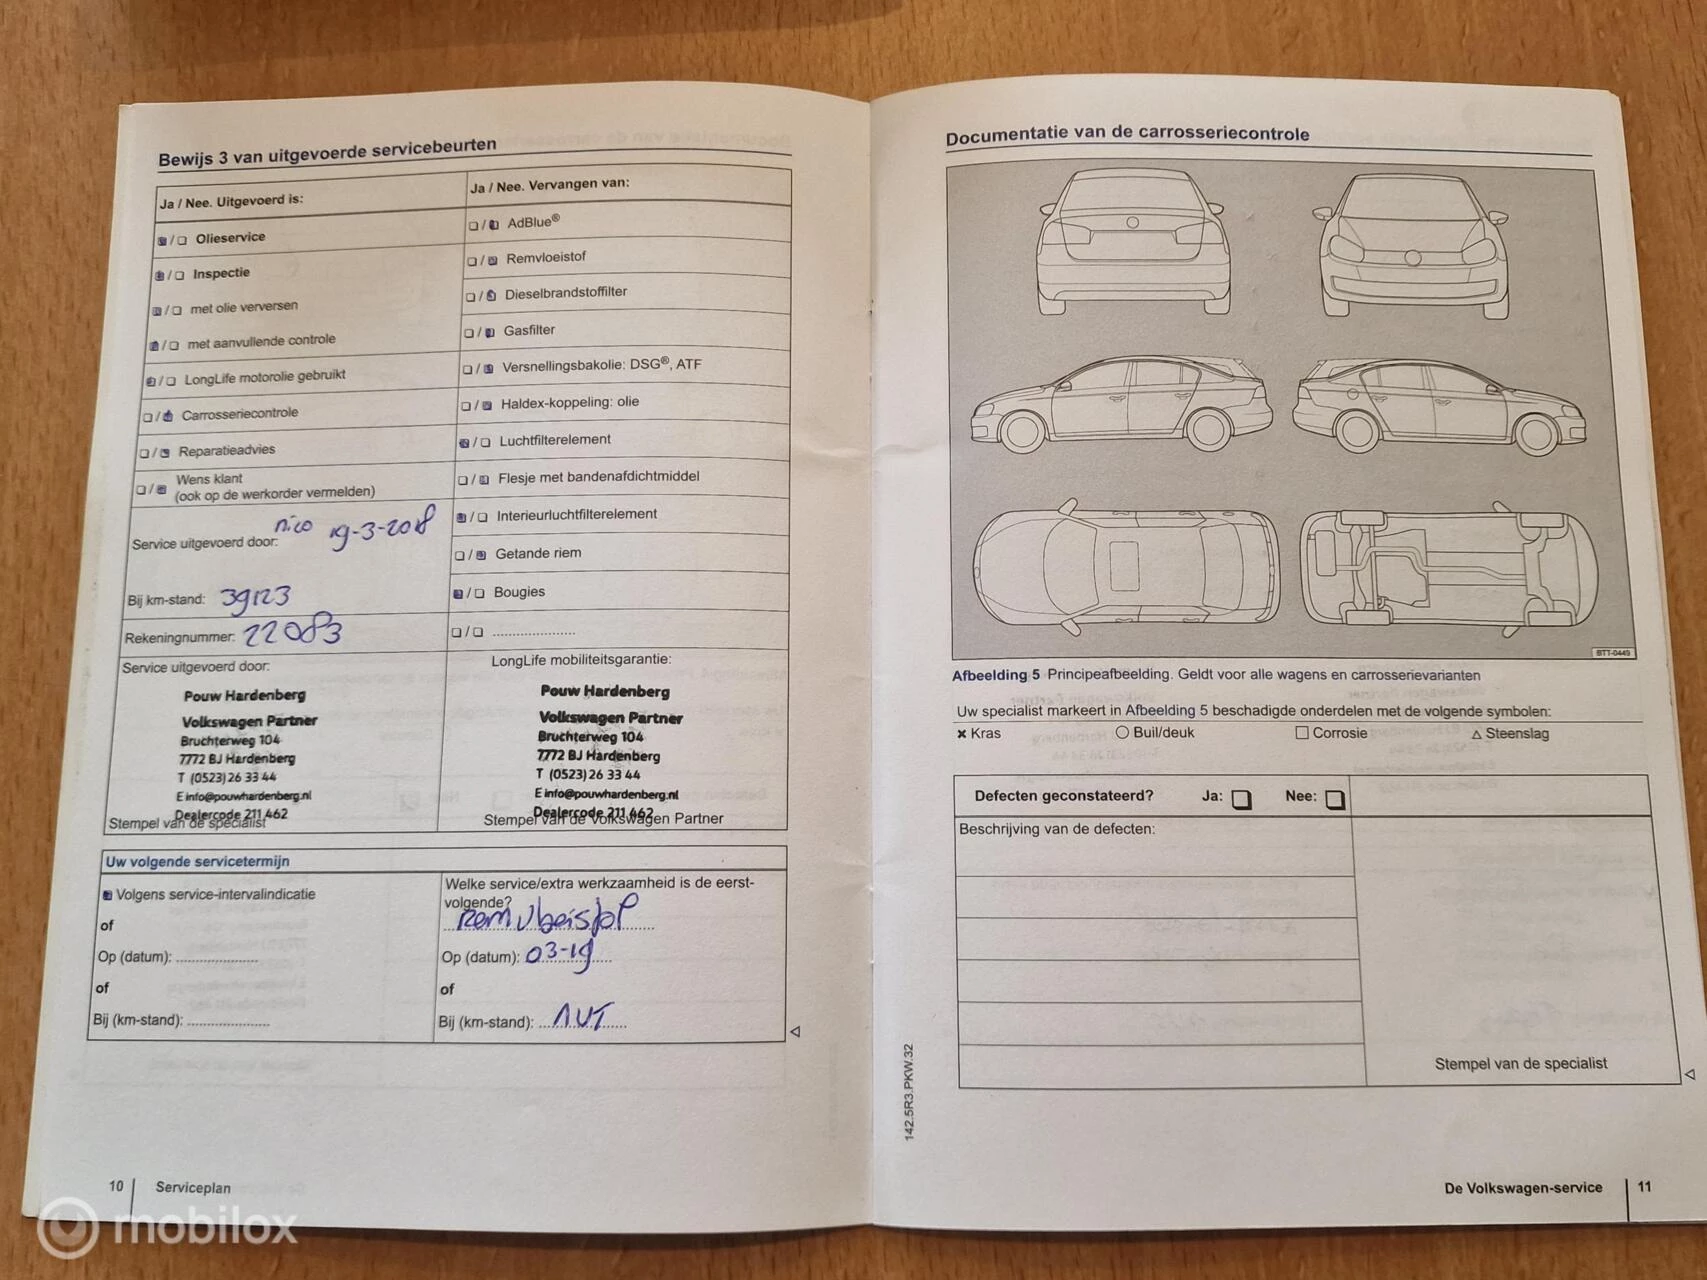 Bewijs 3 van uitgevoerde servicebeurten
Ja / Nee. Uitgevoerd is:
Olieservice
Inspectie
met olie verversen
met aanvullende controle
LongLife motorolie gebruikt
Carrosseriecontrole
Reparatieadvies
Wens klant
(ook op de werkorder vermelden)
Service uitgevoerd door: nico 19-3-2018
Bij km-stand: 39123
Rekeningnummer: 22083
Service uitgevoerd door:
Pouw Hardenberg
Volkswagen Partner
Bruchterweg 104
7772 BJ Hardenberg
T (0523) 26 33 44
E info@pouwhardenberg.nl
Dealercode 211 462
Stempel van de specialist
Ja / Nee. Vervangen van:
AdBlue®
Remvloeistof
Dieselbrandstoffilter
Gasfilter
Versnellingsbakolie: DSG®, ATF
Haldex-koppeling: olie
Luchtfilterelement
Flesje met bandenafdichtmiddel
Interieurluchtfilterelement
Getande riem
Bougies
LongLife mobiliteitsgarantie:
Pouw Hardenberg
Volkswagen Partner
Bruchterweg 104
7772 BJ Hardenberg
T (0523) 26 33 44
E info@pouwhardenberg.nl
Dealercode 211 462
Stempel van de Volkswagen Partner
Uw volgende servicetermijn
Volgens service-intervalindicatie
of
Op (datum):
of
Bij (km-stand):
Welke service/extra werkzaamheid is de eerst-
volgende?
Op (datum): 03-19
of
Bij (km-stand):
10 Serviceplan
Documentatie van de carrosseriecontrole
BTT-0449
Afbeelding 5 Principeafbeelding. Geldt voor alle wagens en carrosserievarianten
Uw specialist markeert in Afbeelding 5 beschadigde onderdelen met de volgende symbolen:
× Kras ○ Buil/deuk □ Corrosie △ Steenslag
Defecten geconstateerd? Ja: Nee:
Beschrijving van de defecten:
Stempel van de specialist
142.5R3.PKW.32
De Volkswagen-service 11
mobilox